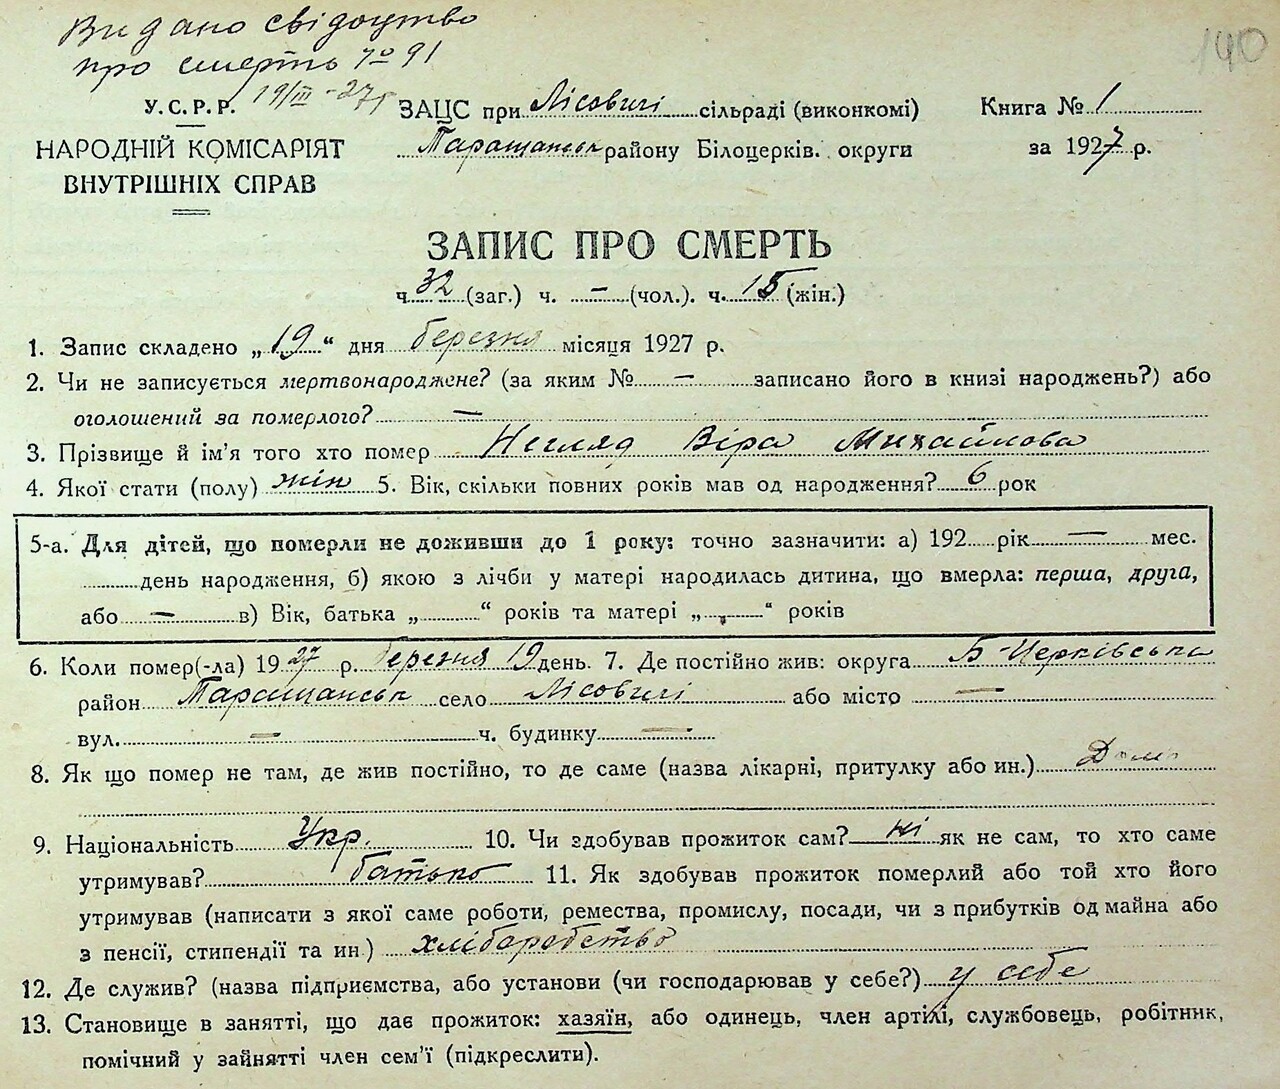 Видано свідоцтво
про смерть № 91
19/III - 27 р
140
У.С.Р.Р.
НАРОДНІЙ КОМІСАРІЯТ
ВНУТРІШНІХ СПРАВ
ЗАЦС при Лісовичі сільраді (виконкомі)
Таращанськ району Білоцерків. округи
Книга № 1
за 1927 р.
ЗАПИС ПРО СМЕРТЬ
ч. 32 (заг.) ч. – (чол.). ч. 15 (жін.)
1. Запис складено „19“ дня березня місяця 1927 р.
2. Чи не записується мертвонароджене? (за яким № – записано його в книзі народжень?) або
оголошений за померлого? –
3. Прізвище й ім'я того хто помер Негляд Віра Михайлова
4. Якої стати (полу) жін 5. Вік, скільки повних років мав од народження? 6 рок
5-а. Для дітей, що померли не доживши до 1 року: точно зазначити: а) 192 рік – мес.
день народження, б) якою з лічби у матері народилась дитина, що вмерла: перша, друга,
або – в) Вік, батька „ “ років та матері „ “ років
6. Коли помер(-ла) 1927 р. березня 19 день. 7. Де постійно жив: округа Б-Церківська
район Таращанськ село Лісовичі або місто –
вул. – ч. будинку –
8. Як що помер не там, де жив постійно, то де саме (назва лікарні, притулку або ин.) Дома
9. Національність Укр. 10. Чи здобував прожиток сам? ні як не сам, то хто саме
утримував? батько 11. Як здобував прожиток померлий або той хто його
утримував (написати з якої саме роботи, ремества, промислу, посади, чи з прибутків од майна або
з пенсії, стипендії та ин.) хліборобство
12. Де служив? (назва підприємства, або установи (чи господарював у себе?) у себе
13. Становище в занятті, що дає прожиток: хазяїн, або одинець, член артілі, службовець, робітник,
помічний у зайнятті член сем'ї (підкреслити).